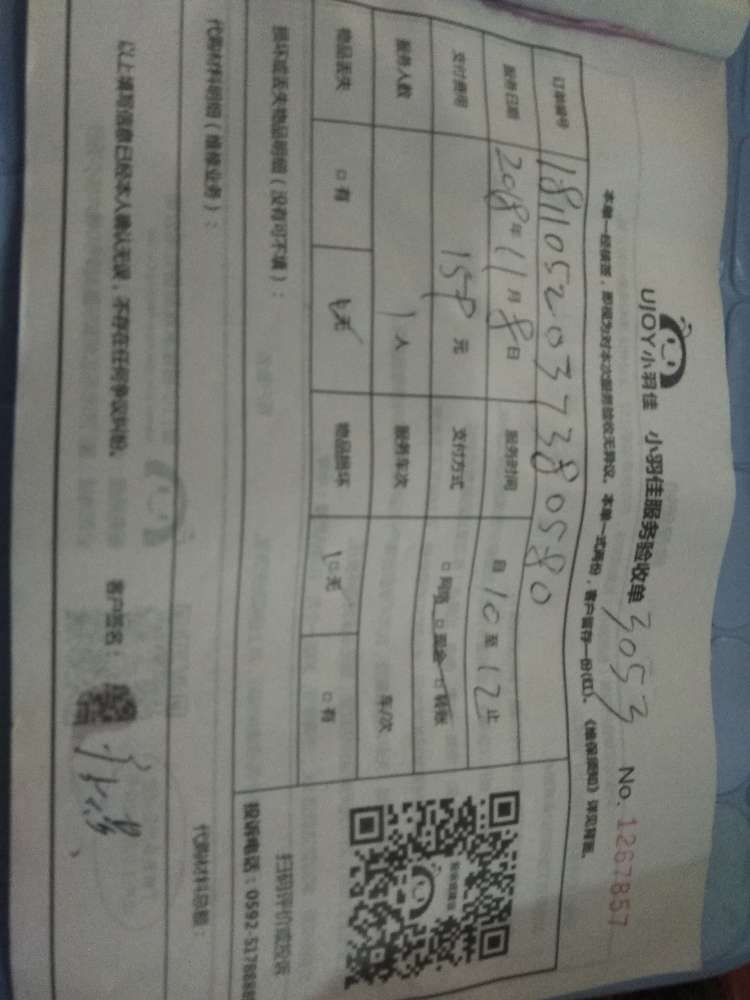 UJOY小羽佳 小羽佳服务验收单 3053 No. 1267857
本单一经接签，即视为对本次服务验收无异议。本单一式两份，客户留存一份(红)。《维保须知》详见背面。
订单编号 1811052037380580
服务日期 2018年11月8日 服务时间 自10至12止
支付费用 159元 支付方式 □网络 □现金 □转账
服务人数 1人 服务车次 车/次
物品丢失 □有 □无 物品损坏 □无 □有
损坏或丢失物品明细（没有可不填）：
扫码评价或投诉
投诉电话：0592-5178888
代购材料明细（维修业务）：
代购材料总额：
以上填写信息已经本人确认无误，不存在任何争议纠纷。 客户签名：